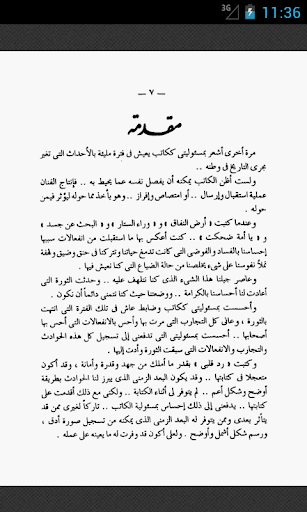 3G 11:36
— ٧ —
مقدمة
مرة أخرى أشعر بمسئوليتى ككاتب يعيش فى فترة مليئة بالأحداث التى تغير
مجرى التاريخ فى وطنه ..
ولست أظن الكاتب يمكنه أن يفصل نفسه عما يحيط به .. فإنتاج الفنان
عملية استقبال وإرسال .. أو امتصاص وإفراز .. وهو يأخذ مما حوله ليؤثر فيمن
حوله .
وعندما كتبت « أرض النفاق » و « وراء الستار » و « البحث عن جسد »
و « يا أمة ضحكت » .. كنت أعكس بها ما استقبلت من انفعالات سببها
إحساسنا بالفساد والفوضى التى كانت تدمغ حياتنا وتتركنا فى حنق وضيق ولهفة
تملأ نفوسنا على شىء يخلصنا من حالة الضياع التى كنا نعيش فيها .
وعاصر جيلنا هذا الشىء الذى كنا نتلهف عليه .. وحدثت الثورة التى
أعادت لنا أحساسنا بالكرامة .. ووضعتنا حيث كنا نتمنى دائماً أن نكون .
وأحسست بمسئوليتى ككاتب وضابط عاش فى تلك الفترة التى انتهت
بالثورة ، وعانى كل التجارب التى مرت بها وأحس بالانفعالات التى أحس بها
أصحابها .. أحسست بمسئوليتى هذه تدفعنى إلى تسجيل كل هذه الحوادث
والتجارب والانفعالات التى سبقت الثورة وأدت إليها .
وكتبت « رد قلبى » بقدر ما أملك من جهد وقدرة وأمانة ، وقد أكون
متعجلا فى كتابتها .. وقد يكون البعد الزمنى الذى يبرز لنا الحوادث بطريقة
أوضح وشكل أعم .. لم يتوفر لى أثناء الكتابة .. ولكنى مع ذلك أقدمت على
كتابتها .. يدفعنى إلى ذلك إحساس بمسئولية الكاتب .. تاركاً لغيرى ممن قد
يتأثر بعدى وممن يتوفر له البعد الزمنى الذى يمكنه من تسجيل صورة أدق ،
ورسم شكل أشمل وأوضح . ولعلى أكون قد وفرت له ما يعينه على عمله .